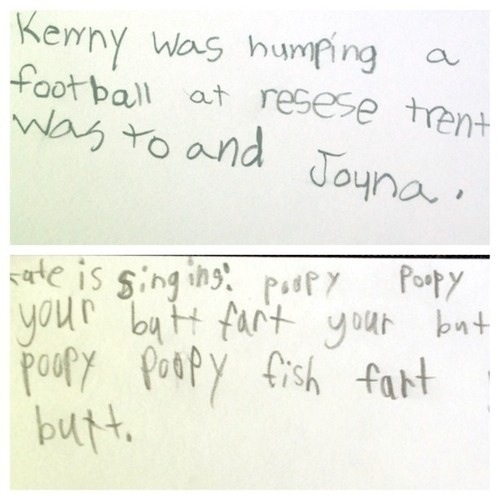 Kenny was humping a
football at resese trent
was to and Joyna.
ate is singing: poopy poopy
your butt fart your but
poopy poopy fish fart
butt.